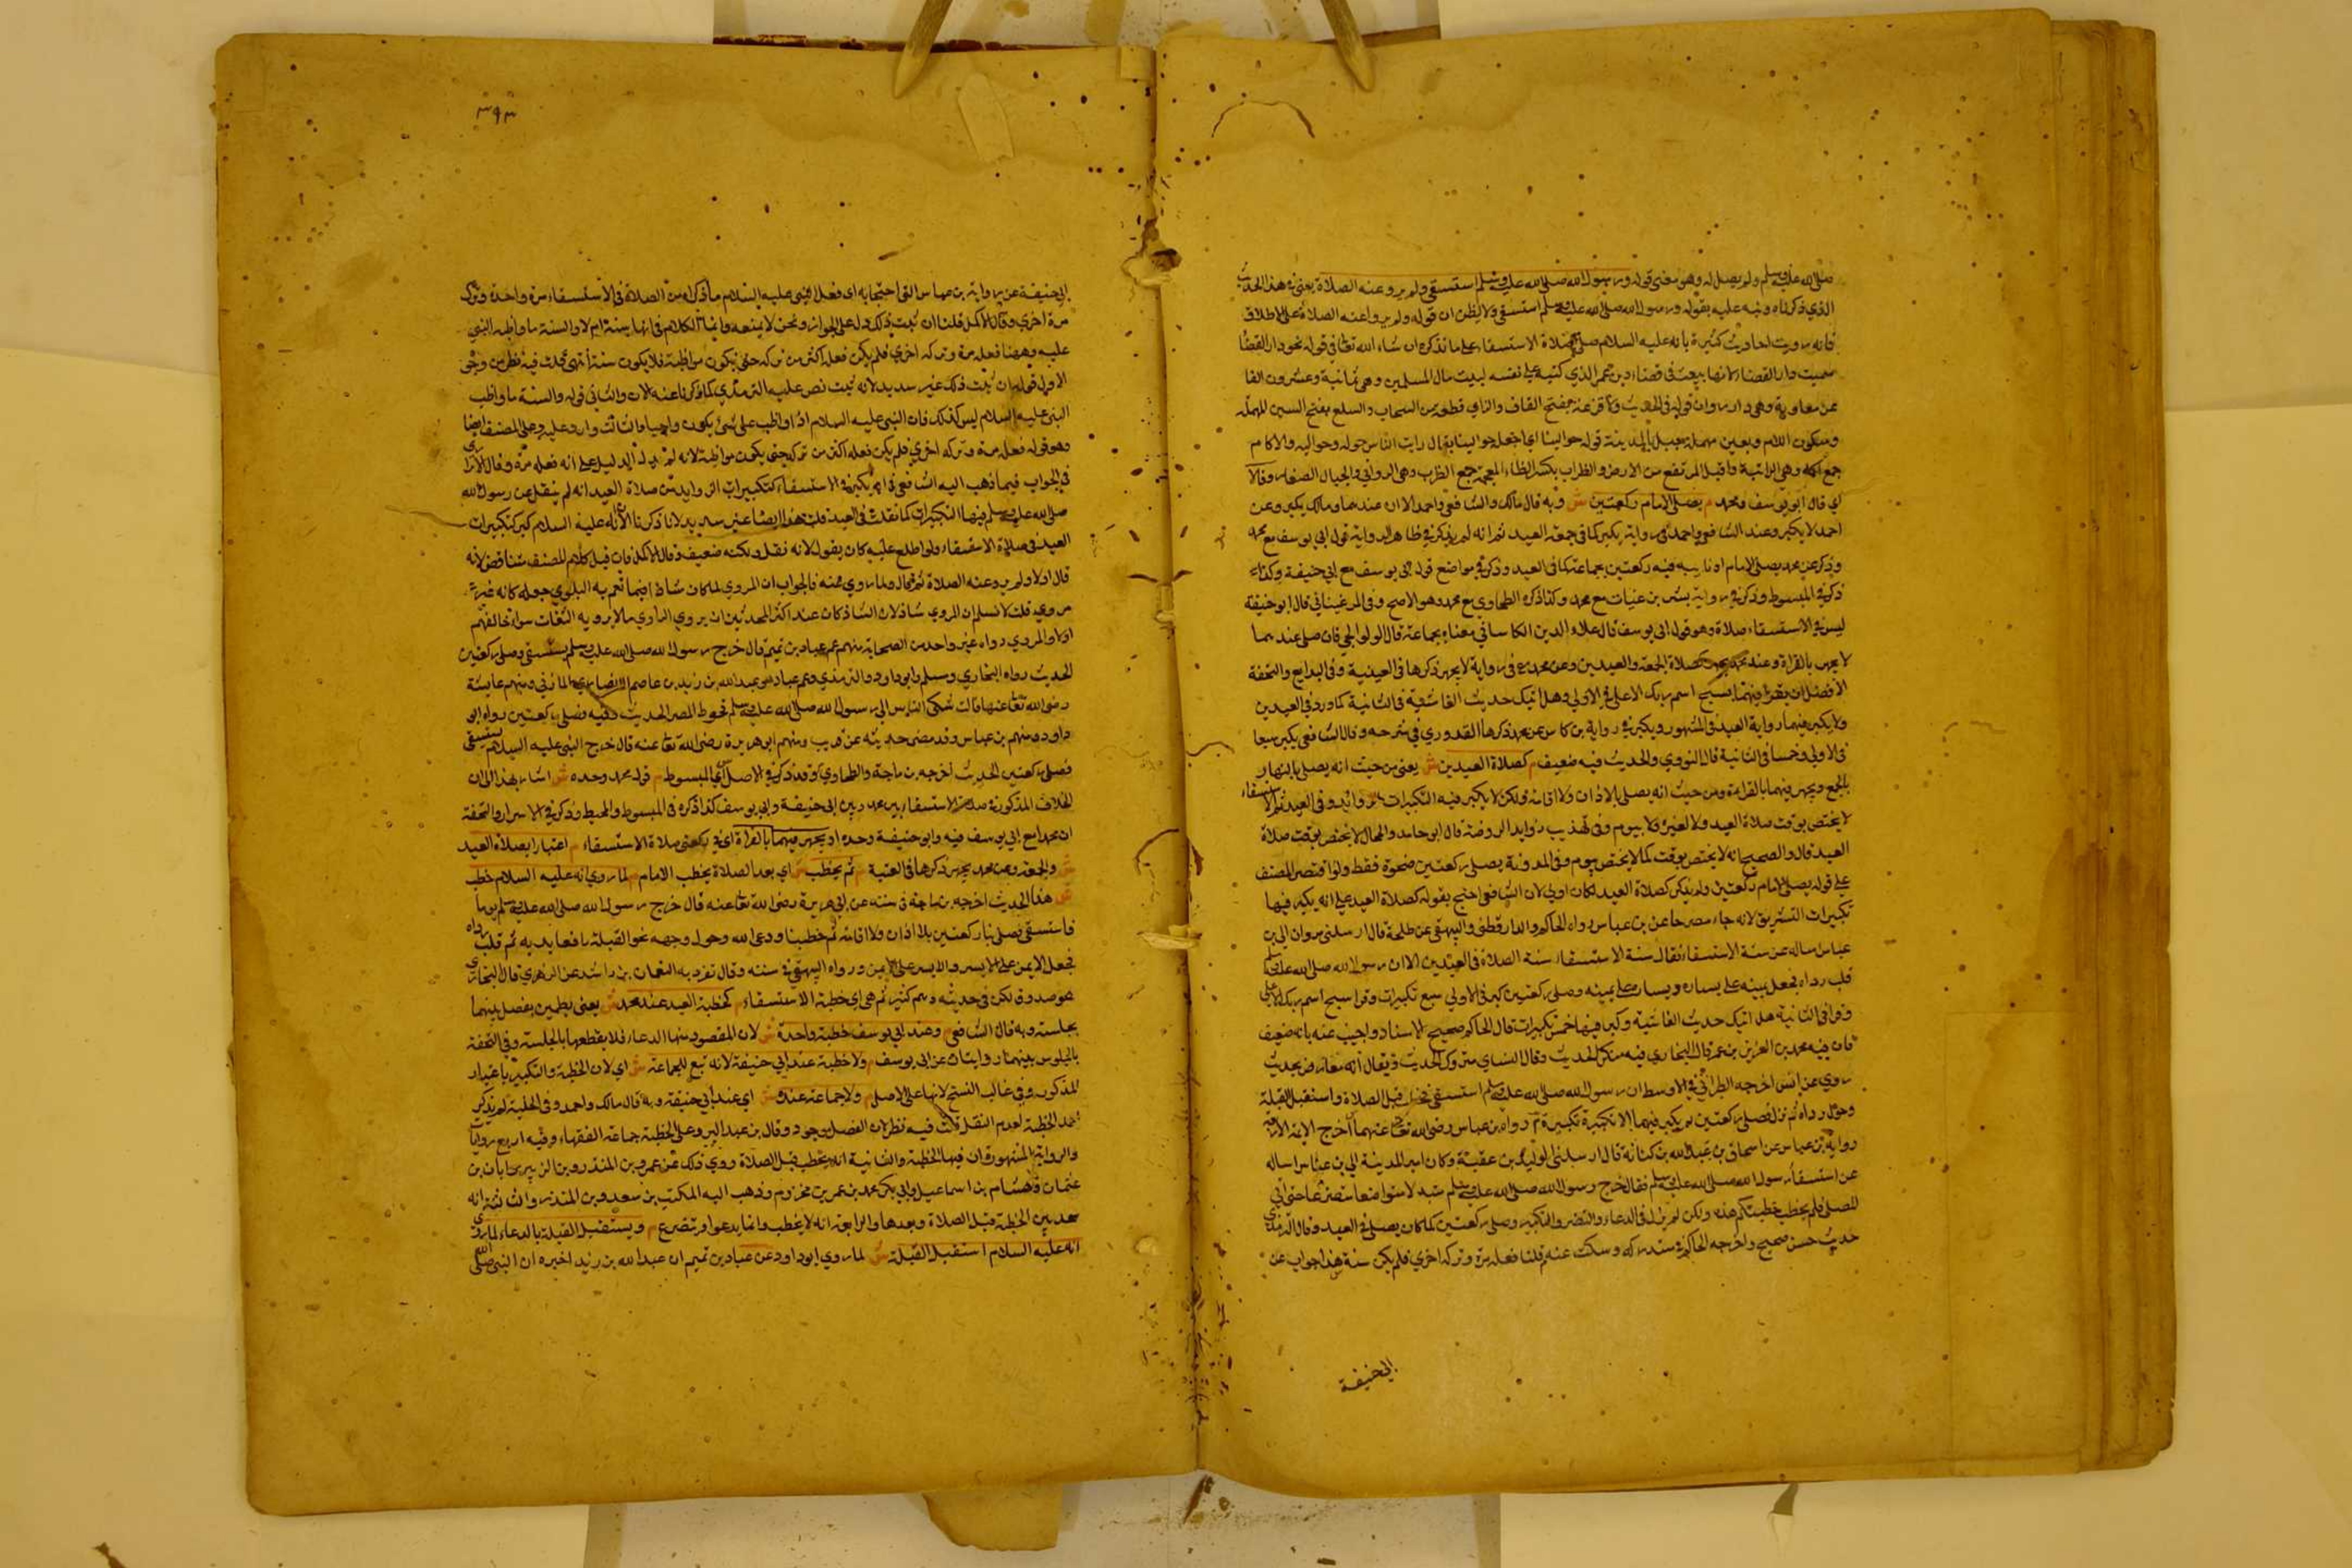 صلى الله عليه وسلم ولم يصل له وهو معنى قوله ورسول الله صلى الله عليه وسلم استسقى ولم يرو عنه الصلاة يعني في هذا الحديث
الذي ذكرناه ونبه عليه بقوله ورسول الله صلى الله عليه وسلم استسقى ولا يظن ان قوله ولم يرو عنه الصلاة على الاطلاق
فانه رويت احاديث كثيرة بانه عليه السلام صلى صلاة الاستسقاء على ما نذكره ان شاء الله تعالى قوله نحو دار القضاء
سميت دار القضاء لانها بيعت في قضاء دين عمر الذي كتبه على نفسه لبيت مال المسلمين وهو ثمانية وعشرون الفا
عن معاوية وهي دار مروان قوله في الحديث ولا قزعة بفتح القاف والزاي قطعة من السحاب والسلع بفتح السين المهملة
وسكون اللام وبعين مهملة جبل بالمدينة قوله حوالينا اي اجعل حوالينا يقال رايت الناس حوله وحواليه والاكام
جمع اكمة وهي الرابية وقيل المرتفع من الارض والظراب بكسر الظاء المعجمة جمع الظرب وهي الروابي والجبال الصغار وقالا
اي قال ابو يوسف ومحمد م يصلي الامام ركعتين ش وبه قال مالك والشافعي واحمد الا ان عندهما ومالك يكبر وعن
احمد لا يكبر وعند الشافعي واحمد في رواية يكبر كما في العيد ثم انه لم يذكر في ظاهر الرواية قول ابي يوسف مع محمد
وذكر عن محمد يصلي الامام او نايبه فيه ركعتين بجماعة كما في العيد وذكر في مواضع قول ابي يوسف مع ابي حنيفة وكذا
ذكر في المبسوط وذكر في رواية بشر بن غياث مع محمد وكذا ذكره الطحاوي مع محمد وهو الاصح وفي المرغيناني قال ابو حنيفة
ليس في الاستسقاء صلاة وهو قول ابي يوسف قال علاء الدين الكاساني معناه بجماعة قال الولوالجي فان صلى عندهما
لا يجهر بالقراءة وعند محمد يجهر كصلاة الجمعة والعيدين وعن محمد في رواية لا يجهر ذكرها في العيدية وفي البدايع والتحفة
الافضل ان يقرا فيهما بسبح اسم ربك الاعلى في الاولى وهل اتيك حديث الغاشية في الثانية كما ورد في العيدين
ولا يكبر فيهما رواية العيد في المشهور ويكبر في رواية بن كاس عن محمد ذكرها القدوري في شرحه وقال الشافعي يكبر سبعا
في الاولى وخمسا في الثانية قال النووي والحديث فيه ضعيف م كصلاة العيدين ش يعني من حيث انه يصلي بالنهار
بالجمع ويجهر فيهما بالقراءة ومن حيث انه يصلي بلا اذان ولا اقامة ولكن لا يكبر فيه التكبيرات الزوايد وفي العيد ثم الاستسقاء
لا يختص بوقت صلاة العيد ولا لغيره ولا بيوم وفي تهذيب زوايد الروضة قال ابو حامد والمحاملي لا يختص بوقت صلاة
العيد قال والصحيح انه لا يختص بوقت كما لا يختص بيوم وفي المدونة يصلي ركعتين ضحوة فقط ولو اقتصر المصنف
على قوله يصلي الامام ركعتين ولم يذكر كصلاة العيد لكان اولى لان الشافعي احتج بقوله كصلاة العيد على انه يكبر فيها
تكبيرات التشريق لانه جاء مصرحا عن بن عباس رواه الحاكم والدارقطني والبيهقي عن طلحة قال ارسلني مروان الى بن
عباس اساله عن سنة الاستسقاء فقال سنة الاستسقاء سنة الصلاة في العيدين الا ان رسول الله صلى الله عليه وسلم
قلب رداه فجعل يمينه على يساره ويساره على يمينه وصلى ركعتين كبر في الاولى سبع تكبيرات وقرا سبح اسم ربك الاعلى
وقرا في الثانية هل اتيك حديث الغاشية وكبر فيها خمس تكبيرات قال الحاكم صحيح الاسناد واجيب عنه بانه ضعيف
فان فيه محمد بن العزيز بن عمر قال البخاري فيه منكر الحديث وقال النساي متروك الحديث ويقال انه معارض بحديث
روي عن انس اخرجه الطبراني في الاوسط ان رسول الله صلى الله عليه وسلم استسقى فخطب قبل الصلاة واستقبل القبلة
وحول رداه ثم نزل فصلى ركعتين لم يكبر فيهما الا تكبيرة تكبيرة رواه بن عباس رضي الله تعالى عنهما اخرج الائمة الاربعة
رواية بن عباس عن اسحاق بن عبد الله بن كنانة قال ارسلني الوليد بن عقبة وكان امير المدينة الى بن عباس اساله
عن استسقاء رسول الله صلى الله عليه وسلم فقال خرج رسول الله صلى الله عليه وسلم متبذلا متواضعا متضرعا حتى اتى
المصلى فلم يخطب خطبتكم هذه ولكن لم يزل في الدعاء والتضرع والتكبير وصلى ركعتين كما كان يصلي في العيد وقال الترمذي
حديث حسن صحيح واخرجه الحاكم في مستدركه وسكت عنه م قلنا فعله مرة وتركه اخرى فلم يكن سنة هذا جواب عن
ابي حنيفة
٣٩٣
ابي حنيفة عن رواية بن عباس التي احتجا به اي فعل النبي عليه السلام ما ذكر له من الصلاة في الاستسقاء مرة واحدة وتركه
مرة اخرى وقال الاكمل قلنا ان ثبت ذلك دل على الجواز ونحن لا نمنعه وانما الكلام في انها سنة ام لا والسنة ما واظب النبي
عليه وههنا فعله مرة وتركه اخرى فلم يكن فعله اكثر من تركه حتى يكون مواظبة فلا يكون سنة انتهى قلت فيه نظر من وجهين
الاول قوله ان ثبت ذلك غير سديد لانه ثبت نص عليه الترمذي كما ذكرنا عنه الان والثاني قوله والسنة ما واظب
النبي عليه السلام ليس كذلك فان النبي عليه السلام اذا واظب على شئ يكون واجبا والثالث وارد عليه وعلى المصنف ايضا
وهو قوله فعله مرة وتركه اخرى فلم يكن فعله اكثر من تركه حتى يكون مواظبة لانه لم يدل الدليل على انه فعله مرة وقال الاترازي
في الجواب فيما ذهب اليه الشافعي في انه يكبر في الاستسقاء كتكبيرات الزوايد من صلاة العيد انه لم ينقل عن رسول الله
صلى الله عليه وسلم فيها التكبيرات كما نقلت في العيد قلت هذا ايضا غير سديد لانا ذكرنا الان انه عليه السلام كبر كتكبيرات
العيد في صلاة الاستسقاء ولو اطلع عليه كان يقول لانه نقل ولكنه ضعيف وقال الاكمل فان قيل كلام المصنف متناقض لانه
قال اولا ولم يرو عنه الصلاة ثم قال ولما روي عنه فالجواب ان المروي لما كان شاذا فيما تعم به البلوى جعله كانه غير
مروي قلت لا نسلم ان المروي شاذ لان الشاذ كان عند اكثر المحدثين ان يروي الراوي ما لا يرويه الثقات سواء خالفهم
اولا والمروي رواه غير واحد من الصحابة منهم عم عباد بن تميم قال خرج رسول الله صلى الله عليه وسلم يستسقي وصلى ركعتين
الحديث رواه البخاري ومسلم وابو داود والترمذي وعم عباد هو عبد الله بن زيد بن عاصم الانصاري المازني ومنهم عايشة
رضي الله تعالى عنها قالت شكى الناس الى رسول الله صلى الله عليه وسلم قحوط المطر الحديث وفيه فصلى ركعتين رواه ابو
داود ومنهم بن عباس وقد مضى حديثه عن قريب ومنهم ابو هريرة رضي الله تعالى عنه قال خرج النبي عليه السلام يستسقي
فصلى ركعتين الحديث اخرجه بن ماجة والطحاوي وقد ذكر في الاصل اي المبسوط م قول محمد وحده ش اشار بهذا الى ان
الخلاف المذكور في صلاة الاستسقاء بين محمد وبين ابي حنيفة وابي يوسف كذا ذكره في المبسوط والمحيط وذكر في الاسرار والتحفة
ان محمدا مع ابي يوسف فيه وابو حنيفة وحده او يجهر فيهما بالقراءة اي في ركعتي صلاة الاستسقاء م اعتبارا بصلاة العيد
ش والجمعة وعن محمد يجهر ذكرها في العتبية م ثم يخطب ش اي بعد الصلاة يخطب الامام م لما روي انه عليه السلام خطب
ش هذا الحديث اخرجه بن ماجة في سننه عن ابي هريرة رضي الله تعالى عنه قال خرج رسول الله صلى الله عليه وسلم يوما
فاستسقى فصلى بنا ركعتين بلا اذان ولا اقامة ثم خطبنا ودعى الله وحول وجهه نحو القبلة رافعا يديه ثم قلب رداه
فجعل الايمن على الايسر والايسر على الايمن ورواه البيهقي في سننه وقال تفرد به النعمان بن راشد عن الزهري قال البخاري
هو صدوق لكن في حديثه وهم كثير ثم هي اي خطبة الاستسقاء م كخطبة العيد عند محمد ش يعني بخطبتين يفصل بينهما
بجلسة وبه قال الشافعي م وعند ابي يوسف خطبة واحدة ش لان المقصود منها الدعاء فلا يقطعها بالجلسة وفي التحفة
بالجلوس بينهما روايتان عن ابي يوسف م ولا خطبة عند ابي حنيفة لانه تبع للجماعة ش اي لان الخطبة والتكبير باعتبار
المذكور وفي غالب النسخ لانها على الاصل م ولا جماعة عنده ش اي عند ابي حنيفة وبه قال مالك واحمد وفي الحلية لم يذكر
احمد الخطبة لعدم النقل قلت فيه نظر لان الفصل موجود وقال بن عبد البر وعلى الخطبة جماعة الفقهاء وفيه اربع روايات
والرواية المشهورة ان فيها الخطبة والثانية انه يخطب قبل الصلاة روي ذلك عن عمر وبن المنذر وبن الزبير وابان بن
عثمان وهشام بن اسماعيل وابي بكر محمد بن عمر بن مخزوم وذهب اليه المكتب بن سعد وبن المنذر والثالثة انه
محير بين الخطبة قبل الصلاة وبعدها والرابعة انه لا يخطب وانما يدعو ويتضرع م ويستقبل القبلة بالدعاء لما روي
انه عليه السلام استقبل القبلة ش لما روي ابو داود عن عباد بن تميم ان عبد الله بن زيد اخبره ان النبي صلى الله